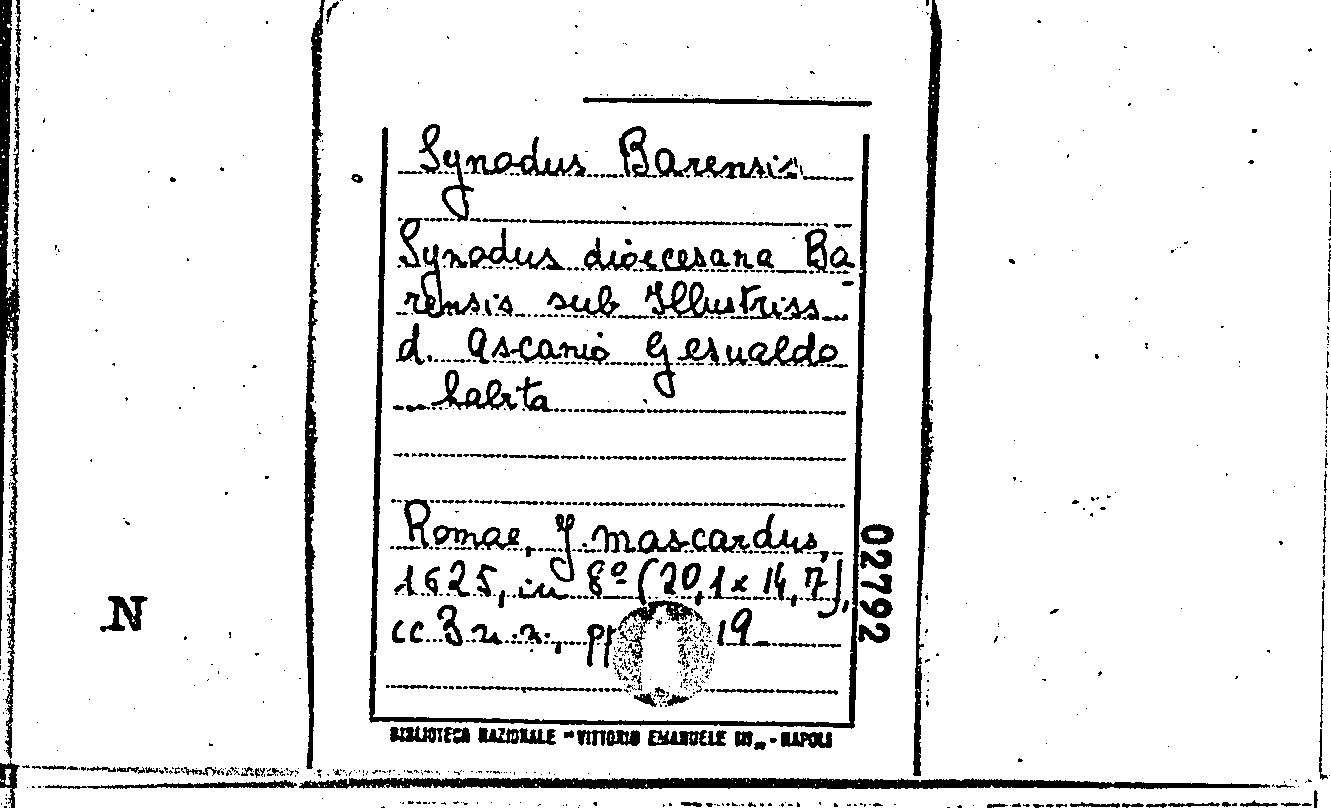 Synodus Barensis
Synodus dioecesana Ba-
rensis sub Illustriss...
d. Ascanio Gesualdo
... habita
Romae, J. Mascardus,
1625, in 8º (20,1 x 14,7),
cc 3 n.n., pp 19
02792
N
BIBLIOTECA NAZIONALE "VITTORIO EMANUELE III" - NAPOLI